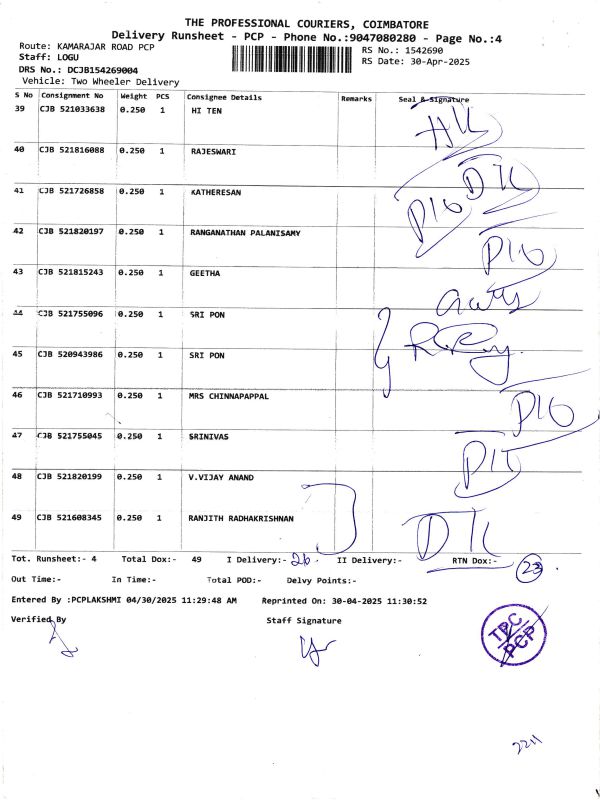 THE PROFESSIONAL COURIERS, COIMBATORE
Delivery Runsheet - PCP - Phone No.:9047080280 - Page No.:4
Route: KAMARAJAR ROAD PCP
RS No.: 1542690
Staff: LOGU
RS Date: 30-Apr-2025
DRS No.: DCJB154269004
Vehicle: Two Wheeler Delivery
S No Consignment No Weight PCS Consignee Details Remarks Seal & Signature
39 CJB 521033638 0.250 1 HI TEN
40 CJB 521816088 0.250 1 RAJESWARI
DK
41 CJB 521726858 0.250 1 KATHERESAN
42 CJB 521820197 0.250 1 RANGANATHAN PALANISAMY
43 CJB 521815243 0.250 1 GEETHA
44 CJB 521755096 0.250 1 SRI PON
45 CJB 520943986 0.250 1 SRI PON
46 CJB 521710993 0.250 1 MRS CHINNAPAPPAL
47 CJB 521755045 0.250 1 SRINIVAS
48 CJB 521820199 0.250 1 V.VIJAY ANAND
49 CJB 521608345 0.250 1 RANJITH RADHAKRISHNAN
DK
Tot. Runsheet:- 4 Total Dox:- 49 I Delivery:- 26 II Delivery:- RTN Dox:- 23
Out Time:- In Time:- Total POD:- Delvy Points:-
Entered By :PCPLAKSHMI 04/30/2025 11:29:48 AM Reprinted On: 30-04-2025 11:30:52
Verified By Staff Signature
TPC
PCP
2211